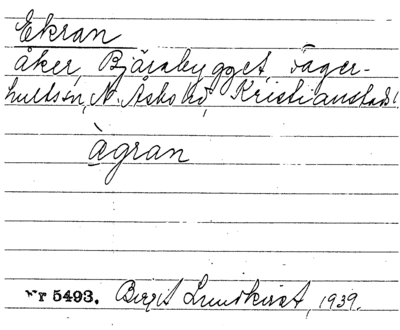 Ekran
åker, Bjärabygget Fager-
hultssn, N. Åsbo hd, Kristianstads l.
àgran
Nr 5493. Birgit Lundkvist, 1939.